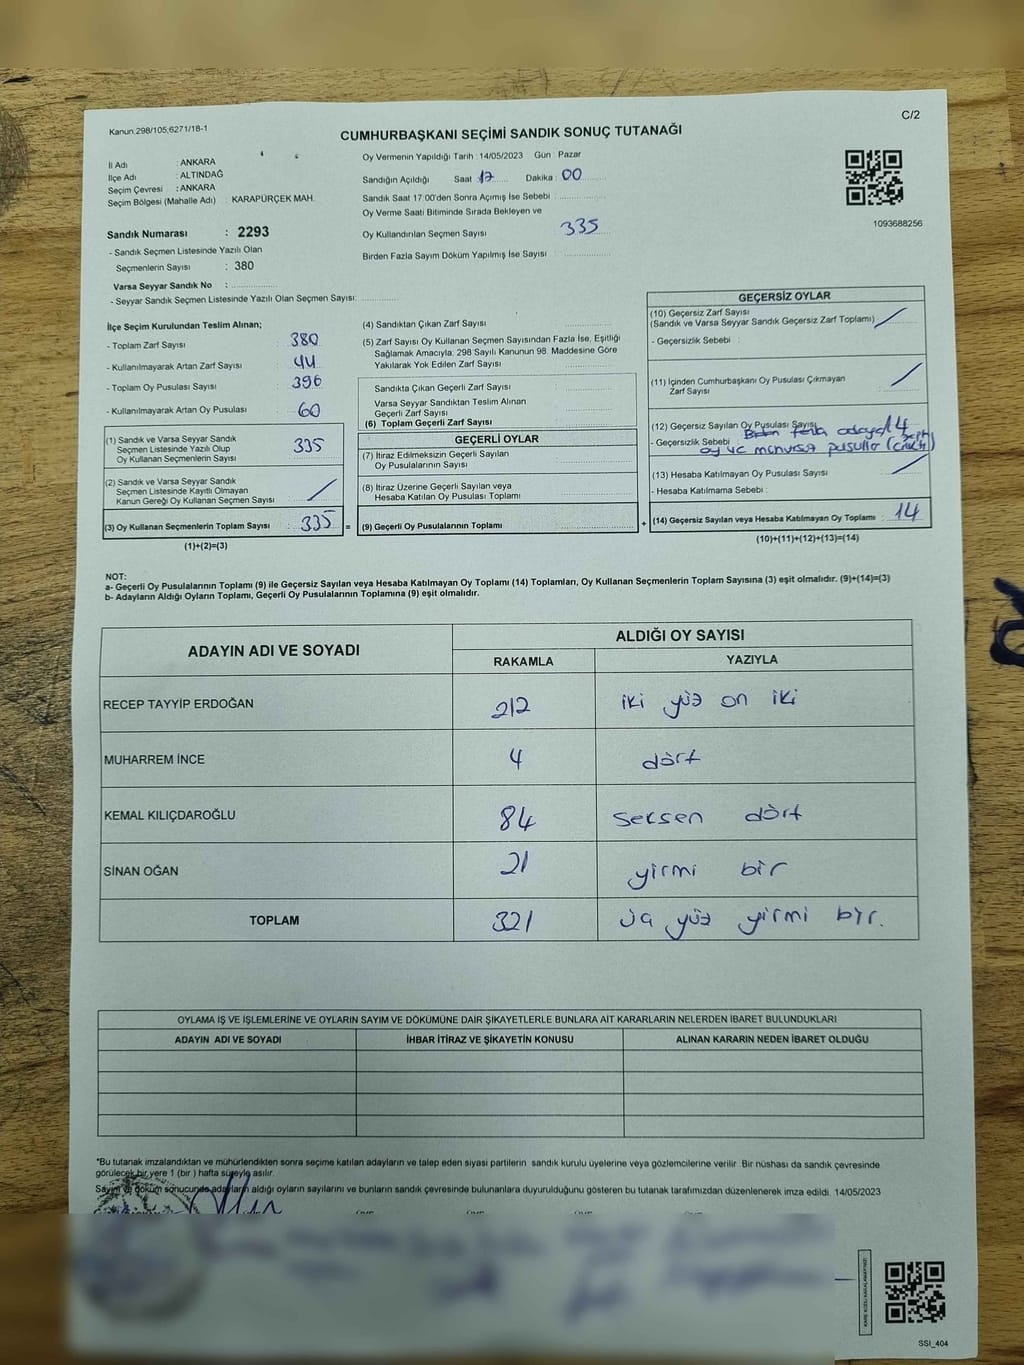 Kanun.298/105;6271/18-1
C/2
CUMHURBAŞKANI SEÇİMİ SANDIK SONUÇ TUTANAĞI
İl Adı : ANKARA
İlçe Adı : ALTINDAĞ
Seçim Çevresi : ANKARA
Seçim Bölgesi (Mahalle Adı) : KARAPÜRÇEK MAH.
Sandık Numarası : 2293
- Sandık Seçmen Listesinde Yazılı Olan
Seçmenlerin Sayısı : 380
Varsa Seyyar Sandık No :
- Seyyar Sandık Seçmen Listesinde Yazılı Olan Seçmen Sayısı:
Oy Vermenin Yapıldığı Tarih : 14/05/2023 Gün : Pazar
Sandığın Açıldığı Saat : 17 Dakika : 00
Sandık Saat 17:00'den Sonra Açımış İse Sebebi :
Oy Verme Saati Bitiminde Sırada Bekleyen ve
Oy Kullandırılan Seçmen Sayısı 335
Birden Fazla Sayım Döküm Yapılmış İse Sayısı
1093688256
İlçe Seçim Kurulundan Teslim Alınan;
- Toplam Zarf Sayısı : 380
- Kullanılmayarak Artan Zarf Sayısı : 44
- Toplam Oy Pusulası Sayısı : 396
- Kullanılmayarak Artan Oy Pusulası : 60
(1) Sandık ve Varsa Seyyar Sandık
Seçmen Listesinde Yazılı Olup
Oy Kullanan Seçmenlerin Sayısı : 335
(2) Sandık ve Varsa Seyyar Sandık
Seçmen Listesinde Kayıtlı Olmayan
Kanun Gereği Oy Kullanan Seçmen Sayısı :
(3) Oy Kullanan Seçmenlerin Toplam Sayısı : 335 =
(1)+(2)=(3)
(4) Sandıktan Çıkan Zarf Sayısı
(5) Zarf Sayısı Oy Kullanan Seçmen Sayısından Fazla İse, Eşitliği
Sağlamak Amacıyla; 298 Sayılı Kanunun 98. Maddesine Göre
Yakılarak Yok Edilen Zarf Sayısı
Sandıkta Çıkan Geçerli Zarf Sayısı
Varsa Seyyar Sandıktan Teslim Alınan
Geçerli Zarf Sayısı
(6) Toplam Geçerli Zarf Sayısı
GEÇERLİ OYLAR
(7) İtiraz Edilmeksizin Geçerli Sayılan
Oy Pusulalarının Sayısı
(8) İtiraz Üzerine Geçerli Sayılan veya
Hesaba Katılan Oy Pusulası Toplamı
(9) Geçerli Oy Pusulalarının Toplamı +
GEÇERSİZ OYLAR
(10) Geçersiz Zarf Sayısı
(Sandık ve Varsa Seyyar Sandık Geçersiz Zarf Toplamı)
- Geçersizlik Sebebi :
(11) İçinden Cumhurbaşkanı Oy Pusulası Çıkmayan
Zarf Sayısı
(12) Geçersiz Sayılan Oy Pusulası Sayısı 14
- Geçersizlik Sebebi fazla adaya
oy ve pusulla
(13) Hesaba Katılmayan Oy Pusulası Sayısı
- Hesaba Katılmama Sebebi :
(14) Geçersiz Sayılan veya Hesaba Katılmayan Oy Toplamı : 14
(10)+(11)+(12)+(13)=(14)
NOT:
a- Geçerli Oy Pusulalarının Toplamı (9) ile Geçersiz Sayılan veya Hesaba Katılmayan Oy Toplamı (14) Toplamları, Oy Kullanan Seçmenlerin Toplam Sayısına (3) eşit olmalıdır. (9)+(14)=(3)
b- Adayların Aldığı Oyların Toplamı, Geçerli Oy Pusulalarının Toplamına (9) eşit olmalıdır.
ADAYIN ADI VE SOYADI
ALDIĞI OY SAYISI
RAKAMLA YAZIYLA
RECEP TAYYİP ERDOĞAN 212 iki yüz on iki
MUHARREM İNCE 4 dört
KEMAL KILIÇDAROĞLU 84 seksen dört
SİNAN OĞAN 21 yirmi bir
TOPLAM 321 üç yüz yirmi bir.
OYLAMA İŞ VE İŞLEMLERİNE VE OYLARIN SAYIM VE DÖKÜMÜNE DAİR ŞİKAYETLERLE BUNLARA AİT KARARLARIN NELERDEN İBARET BULUNDUKLARI
ADAYIN ADI VE SOYADI İHBAR İTİRAZ VE ŞİKAYETİN KONUSU ALINAN KARARIN NEDEN İBARET OLDUĞU
*Bu tutanak imzalandıktan ve mühürlendikten sonra seçime katılan adayların ve talep eden siyasi partilerin sandık kurulu üyelerine veya gözlemcilerine verilir. Bir nüshası da sandık çevresinde
görülecek bir yere 1 (bir ) hafta süreyle asılır.
Sayım ve döküm sonucunda adayların aldığı oyların sayılarını ve bunların sandık çevresinde bulunanlara duyurulduğunu gösteren bu tutanak tarafımızdan düzenlenerek imza edildi. 14/05/2023
SSI_404